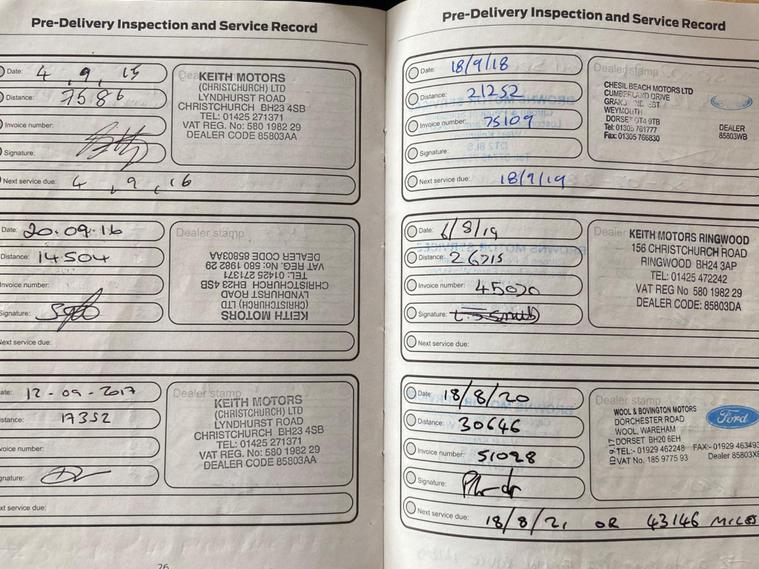 Pre-Delivery Inspection and Service Record
Date: 4 . 9 . 15
Distance: 7586
Invoice number:
Signature:
Next service due: 4 . 9 . 16
KEITH MOTORS
(CHRISTCHURCH) LTD
LYNDHURST ROAD
CHRISTCHURCH BH23 4SB
TEL: 01425 271371
VAT REG. No: 580 1982 29
DEALER CODE 85803AA
Date: 20.09.16
Distance: 14504
Invoice number:
Signature:
Next service due:
Dealer stamp
KEITH MOTORS
(CHRISTCHURCH) LTD
LYNDHURST ROAD
CHRISTCHURCH BH23 4SB
TEL: 01425 271371
VAT REG. No: 580 1982 29
DEALER CODE 85803AA
ate: 12-09-2017
stance: 17352
voice number:
gnature:
xt service due:
Dealer stamp
KEITH MOTORS
(CHRISTCHURCH) LTD
LYNDHURST ROAD
CHRISTCHURCH BH23 4SB
TEL: 01425 271371
VAT REG. No: 580 1982 29
DEALER CODE 85803AA
26
Pre-Delivery Inspection and Service Record
Date: 18/9/18
Distance: 21252
Invoice number: 75109
Signature:
Next service due: 18/9/19
Dealer stamp
CHESIL BEACH MOTORS LTD
CUMBERLAND DRIVE
WEYMOUTH
DORSET DT4 9TB
Tel: 01305 761777
Fax: 01305 766830
DEALER
85803WB
Date: 6/8/19
Distance: 26715
Invoice number: 45020
Signature:
Next service due:
Dealer
KEITH MOTORS RINGWOOD
156 CHRISTCHURCH ROAD
RINGWOOD BH24 3AP
TEL: 01425 472242
VAT REG No 580 1982 29
DEALER CODE: 85803DA
Date: 18/8/20
Distance: 30646
Invoice number: 51028
Signature:
Next service due: 18/8/21 OR 43146 MILES
Dealer stamp
WOOL & BOVINGTON MOTORS
DORCHESTER ROAD
WOOL, WAREHAM
DORSET BH20 6EH
TEL:- 01929 462248 FAX:- 01929 46349
VAT No. 185 9775 93 Dealer 85803X
Ford